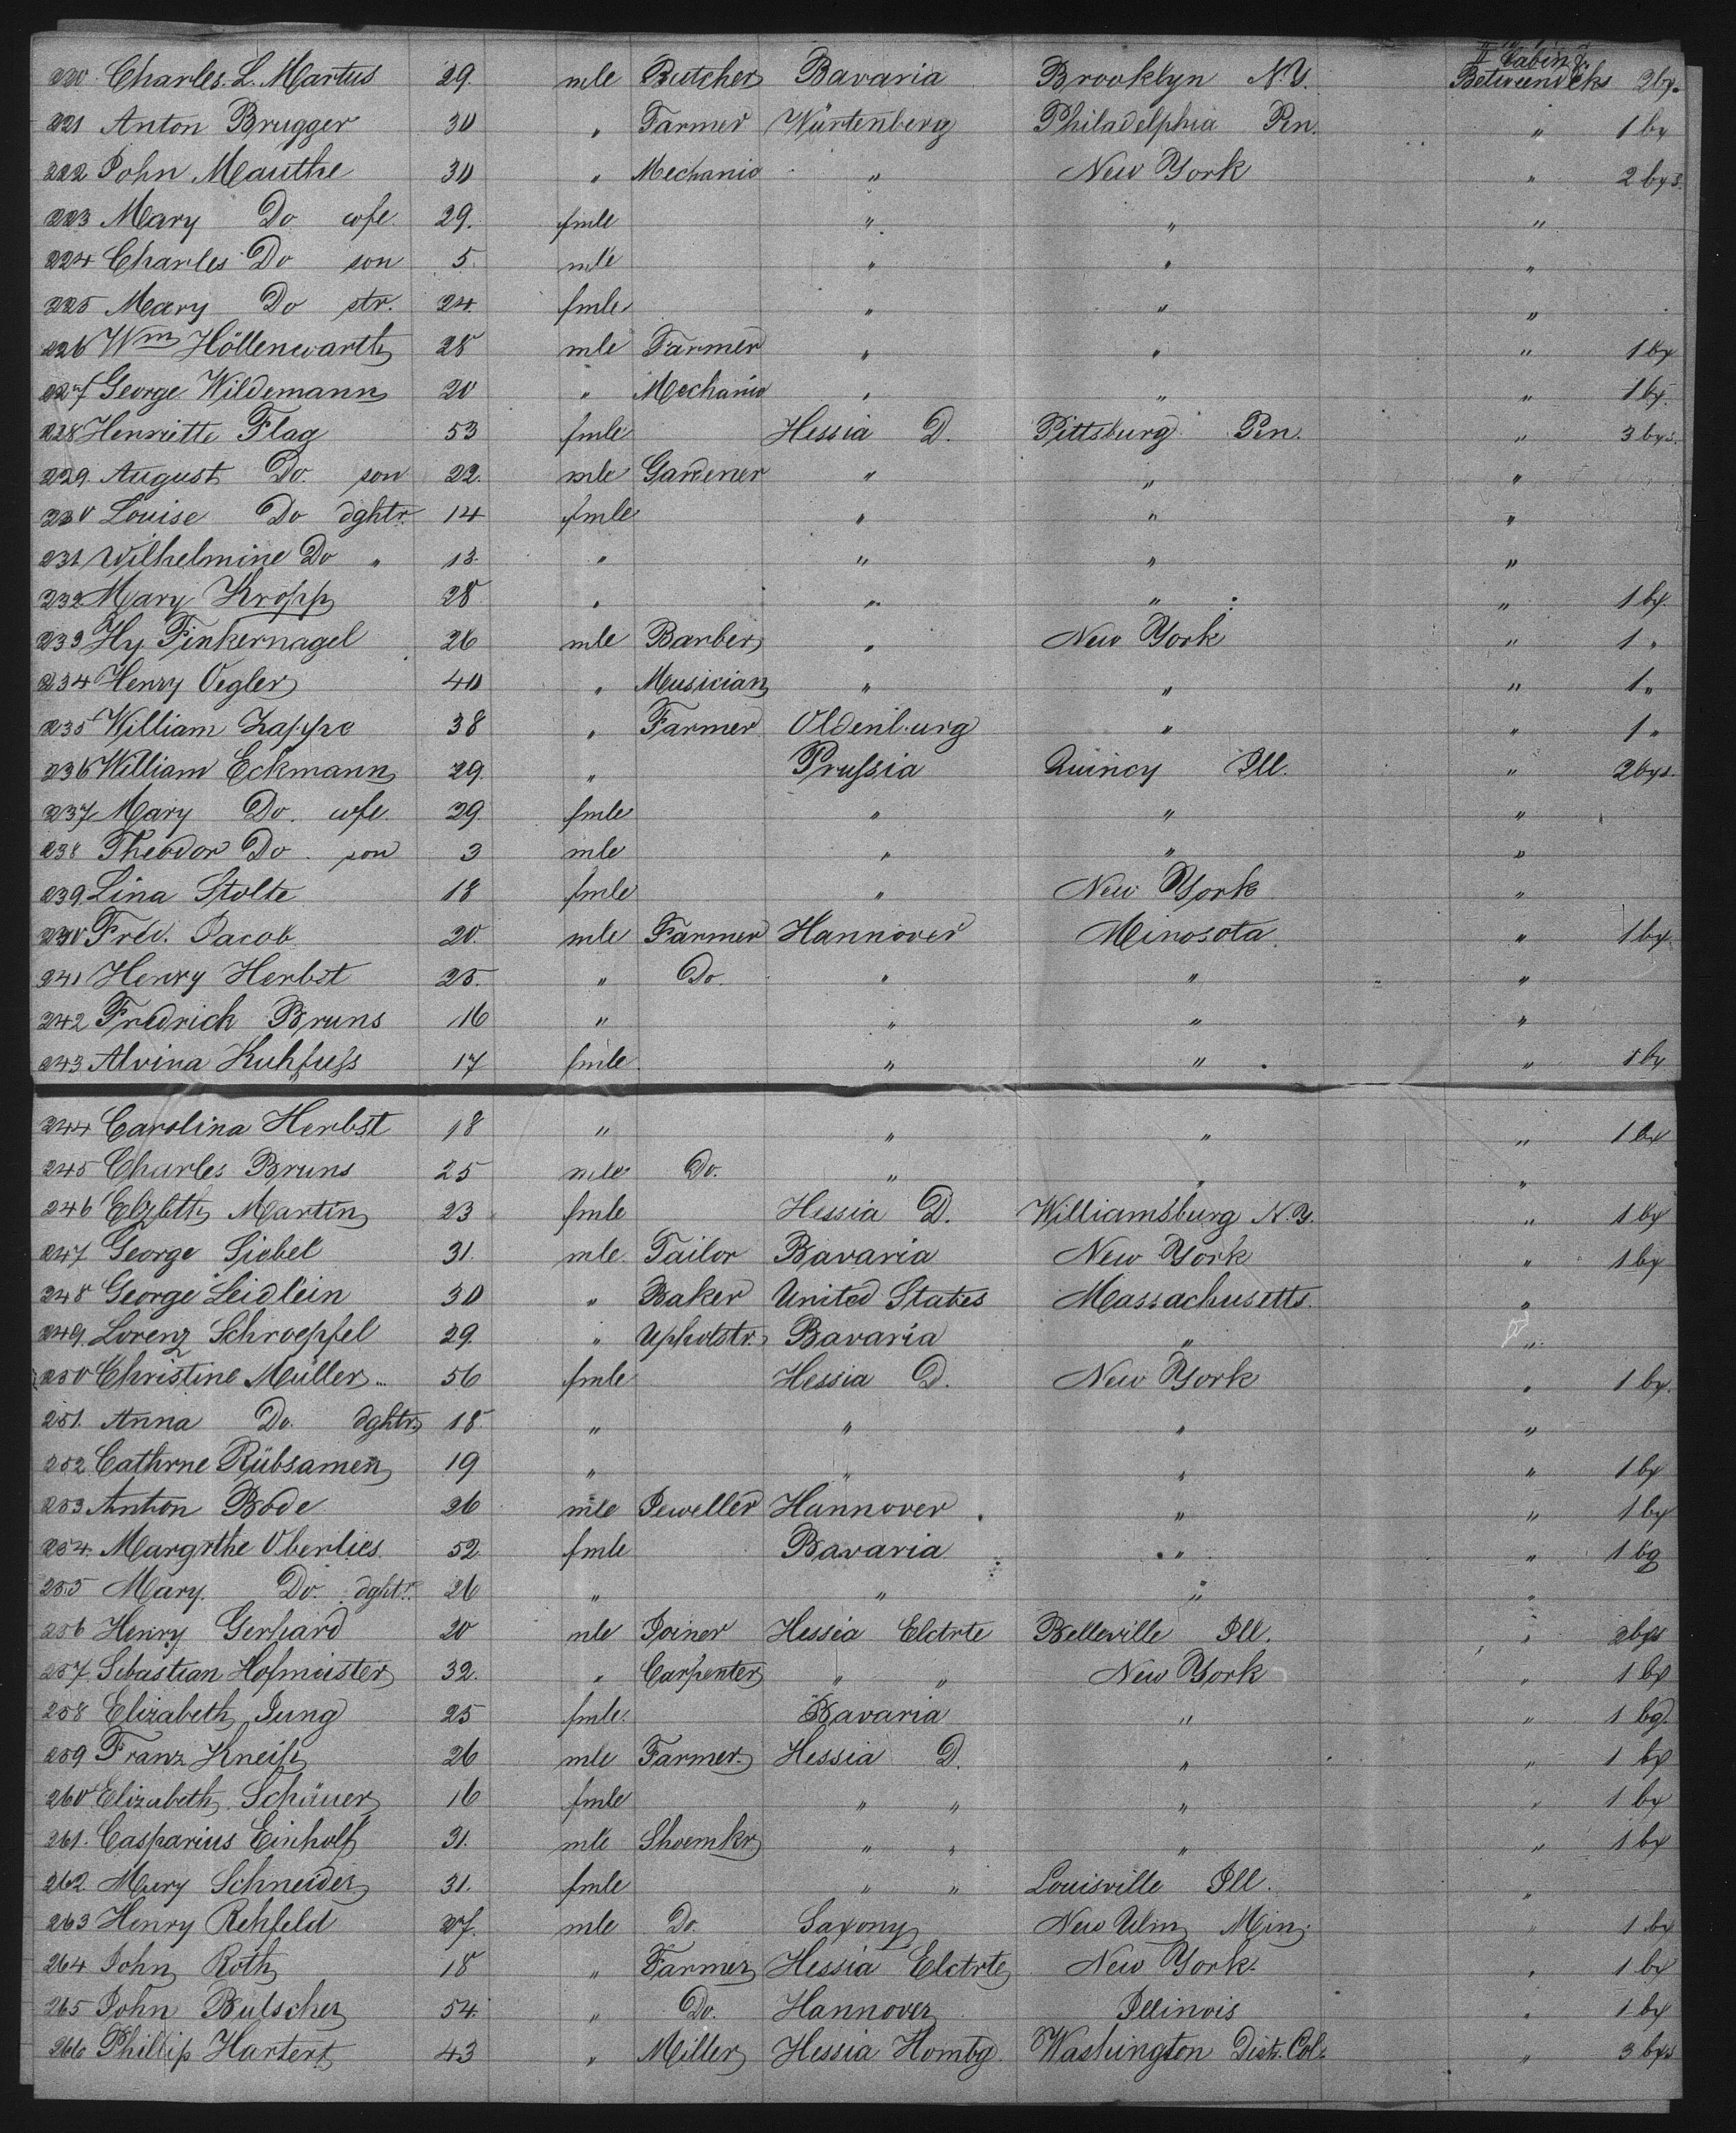 II Cabin &
220 Charles. L. Martus 29. mle Butcher Bavaria Brooklyn N.Y. Betweendeks 2 bx.
221 Anton Brugger 30 " Farmer Würtenberg Philadelphia Pen. " 1 bx
222 John Mauthe 30 " Mechanic " New York " 2 bxs.
223 Mary Do wfe. 29. fmle " " "
224 Charles Do son 5. mle " " "
225 Mary Do str. 24. fmle " " "
226 Wm Höllenwarth 28 mle Farmer " " " 1 bx
227 George Wildemann 20 " Mechanic " " " 1 bx.
228 Henriette Flag 53 fmle Hessia D. Pittsburg Pen. " 3 bxs.
229. August Do. son 22. mle Gardener " " "
230 Louise Do dghtr. 14 fmle " " "
231 Wilhelmine Do " 13. " " " "
232 Mary Kropp 28 " " " " 1 bx.
233 Hy. Finkernagel 26 mle Barber " New York " 1 "
234 Henry Oegler 40 " Musician " " " 1 "
235 William Zappe 38 " Farmer Oldenburg " " 1 "
236 William Eckmann 29. " Prussia Quincy Ill. " 2 bxs.
237 Mary Do. wfe. 29. fmle " " "
238 Theodor Do. son 3 mle " " "
239. Lina Stolte 18 fmle " New York "
230 Frd. Jacob 20. mle Farmer Hannover Minosota. " 1 bx.
241 Henry Herbst 25. " Do. " " "
242 Fredrich Bruns 16 " " " "
243 Alvina Kuhfuss 17 fmle " " " 1 bx
244 Carolina Herbst 18 " " " " 1 bx
245 Charles Bruns 25 mle Do. " " "
246 Elzbth Martin 23 fmle Hessia D. Williamsburg N.Y. " 1 bx
247 George Siebel 31. mle. Tailor Bavaria New York " 1 bx
248 George Leidlein 30 " Baker United States Massachusetts. "
249. Lorenz Schroepfel 29. " Upholstr. Bavaria " "
250 Christine Müller 56 fmle Hessia D. New York " 1 bx.
251. Anna Do. dghtr 18. " " " "
252 Cathrne Rübsamen 19 " " " " 1 bx
253 Anton Bode 26 mle Jeweller Hannover " " 1 bx
254. Margrthe Oberlies. 52 fmle Bavaria " " 1 bg
255 Mary. Do. dghtr. 26 " " " "
256 Henry Gerhard 20 mle Joiner Hessia Elctrte Belleville Ill. " 2 bxs
257. Sebastian Hofmeister 32. " Carpenter " " New York " 1 bx
258 Elizabeth Jung 25 fmle. Bavaria " " 1 bg.
259 Franz Kneip 26 mle Farmer. Hessia D. " " 1 bx
260 Elizabeth Schäuer 16 fmle " " " " 1 bx
261. Casparius Einholf 31. mle Shoemkr " " " " 1 bx
262. Mary Schneider 31. fmle " " Louisville Ill. "
263 Henry Rehfeld 27. mle Do. Saxony New Ulm Min. " 1 bx
264 John Roth 18 " Farmer Hessia Elctrte New York. " 1 bx
265 John Butscher 54. " Do. Hannover Illinois " 1 bx
266 Phillip Hartert 43 " Miller Hessia Hombg. Washington Distr. Col. " 3 bxs